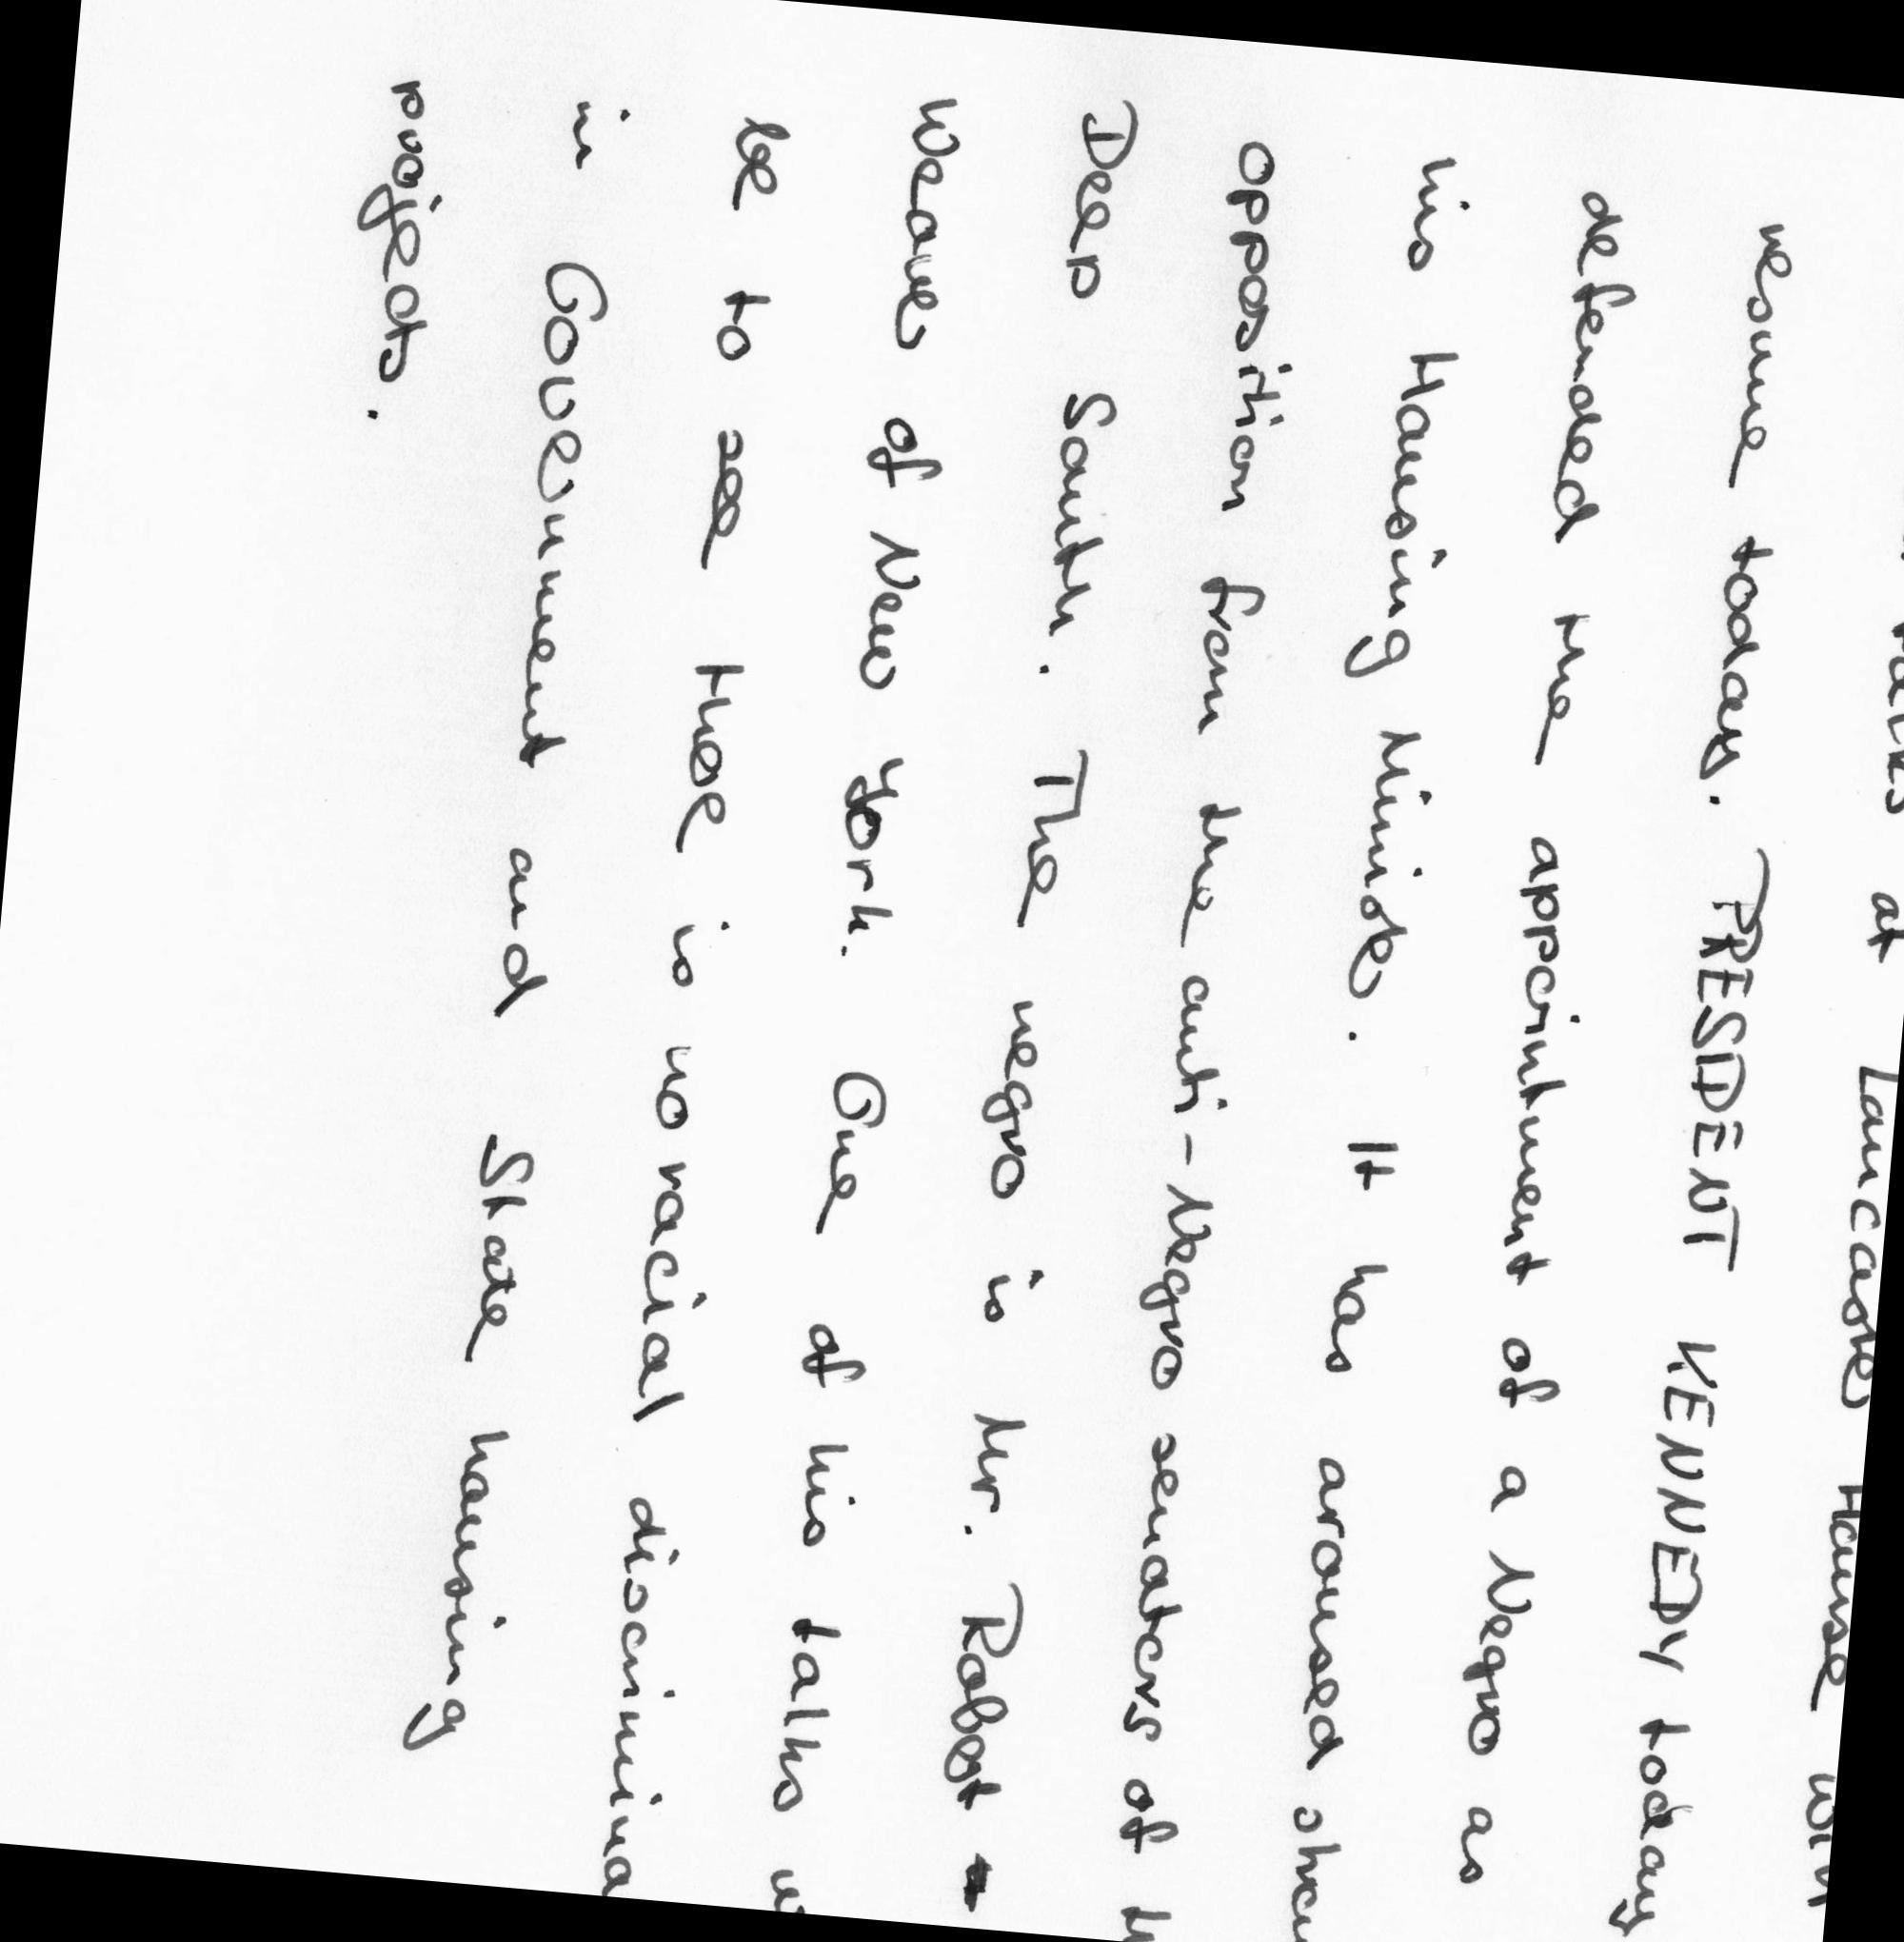 talks at Lancaster House will
resume today. PRESIDENT KENNEDY today
defended the appointment of a Negro as
his Housing Minister. It has aroused
opposition from the anti-Negro senators of
Deep South. The negro is Mr. Robert
Weaver of New York. One of his talks
be to see there is no racial
in Government and State housing
projects.